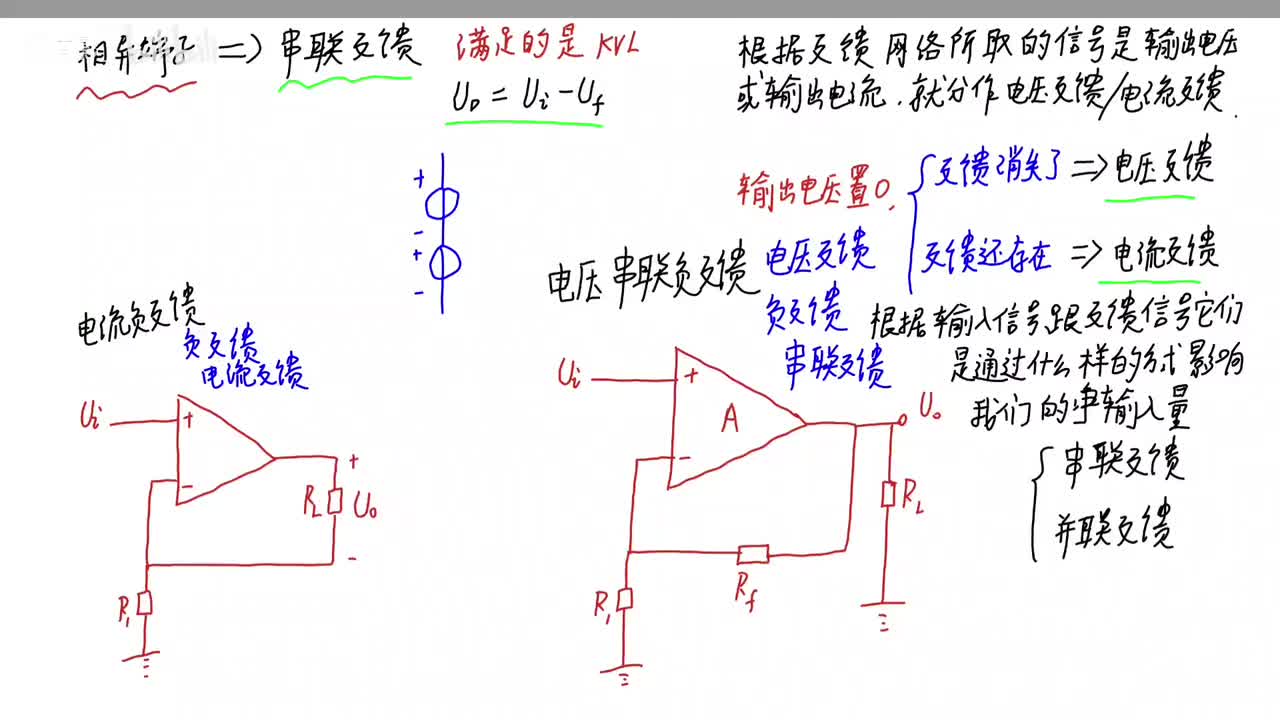 相异端子 => 串联反馈 满足的是 KVL
U_D = U_i - U_f
根据反馈网络所取的信号是输出电压
或输出电流,就分作电压反馈/电流反馈.
输出电压置0,
反馈消失了 => 电压反馈
反馈还存在 => 电流反馈
+
-
+
-
电压串联负反馈
电压反馈
负反馈
串联反馈
根据输入信号跟反馈信号它们
是通过什么样的方式影响
我们的净输入量
串联反馈
并联反馈
电流负反馈
负反馈
电流反馈
U_i
+
-
R_L
+
U_o
-
R_1
U_i
+
-
A
U_o
R_L
R_f
R_1